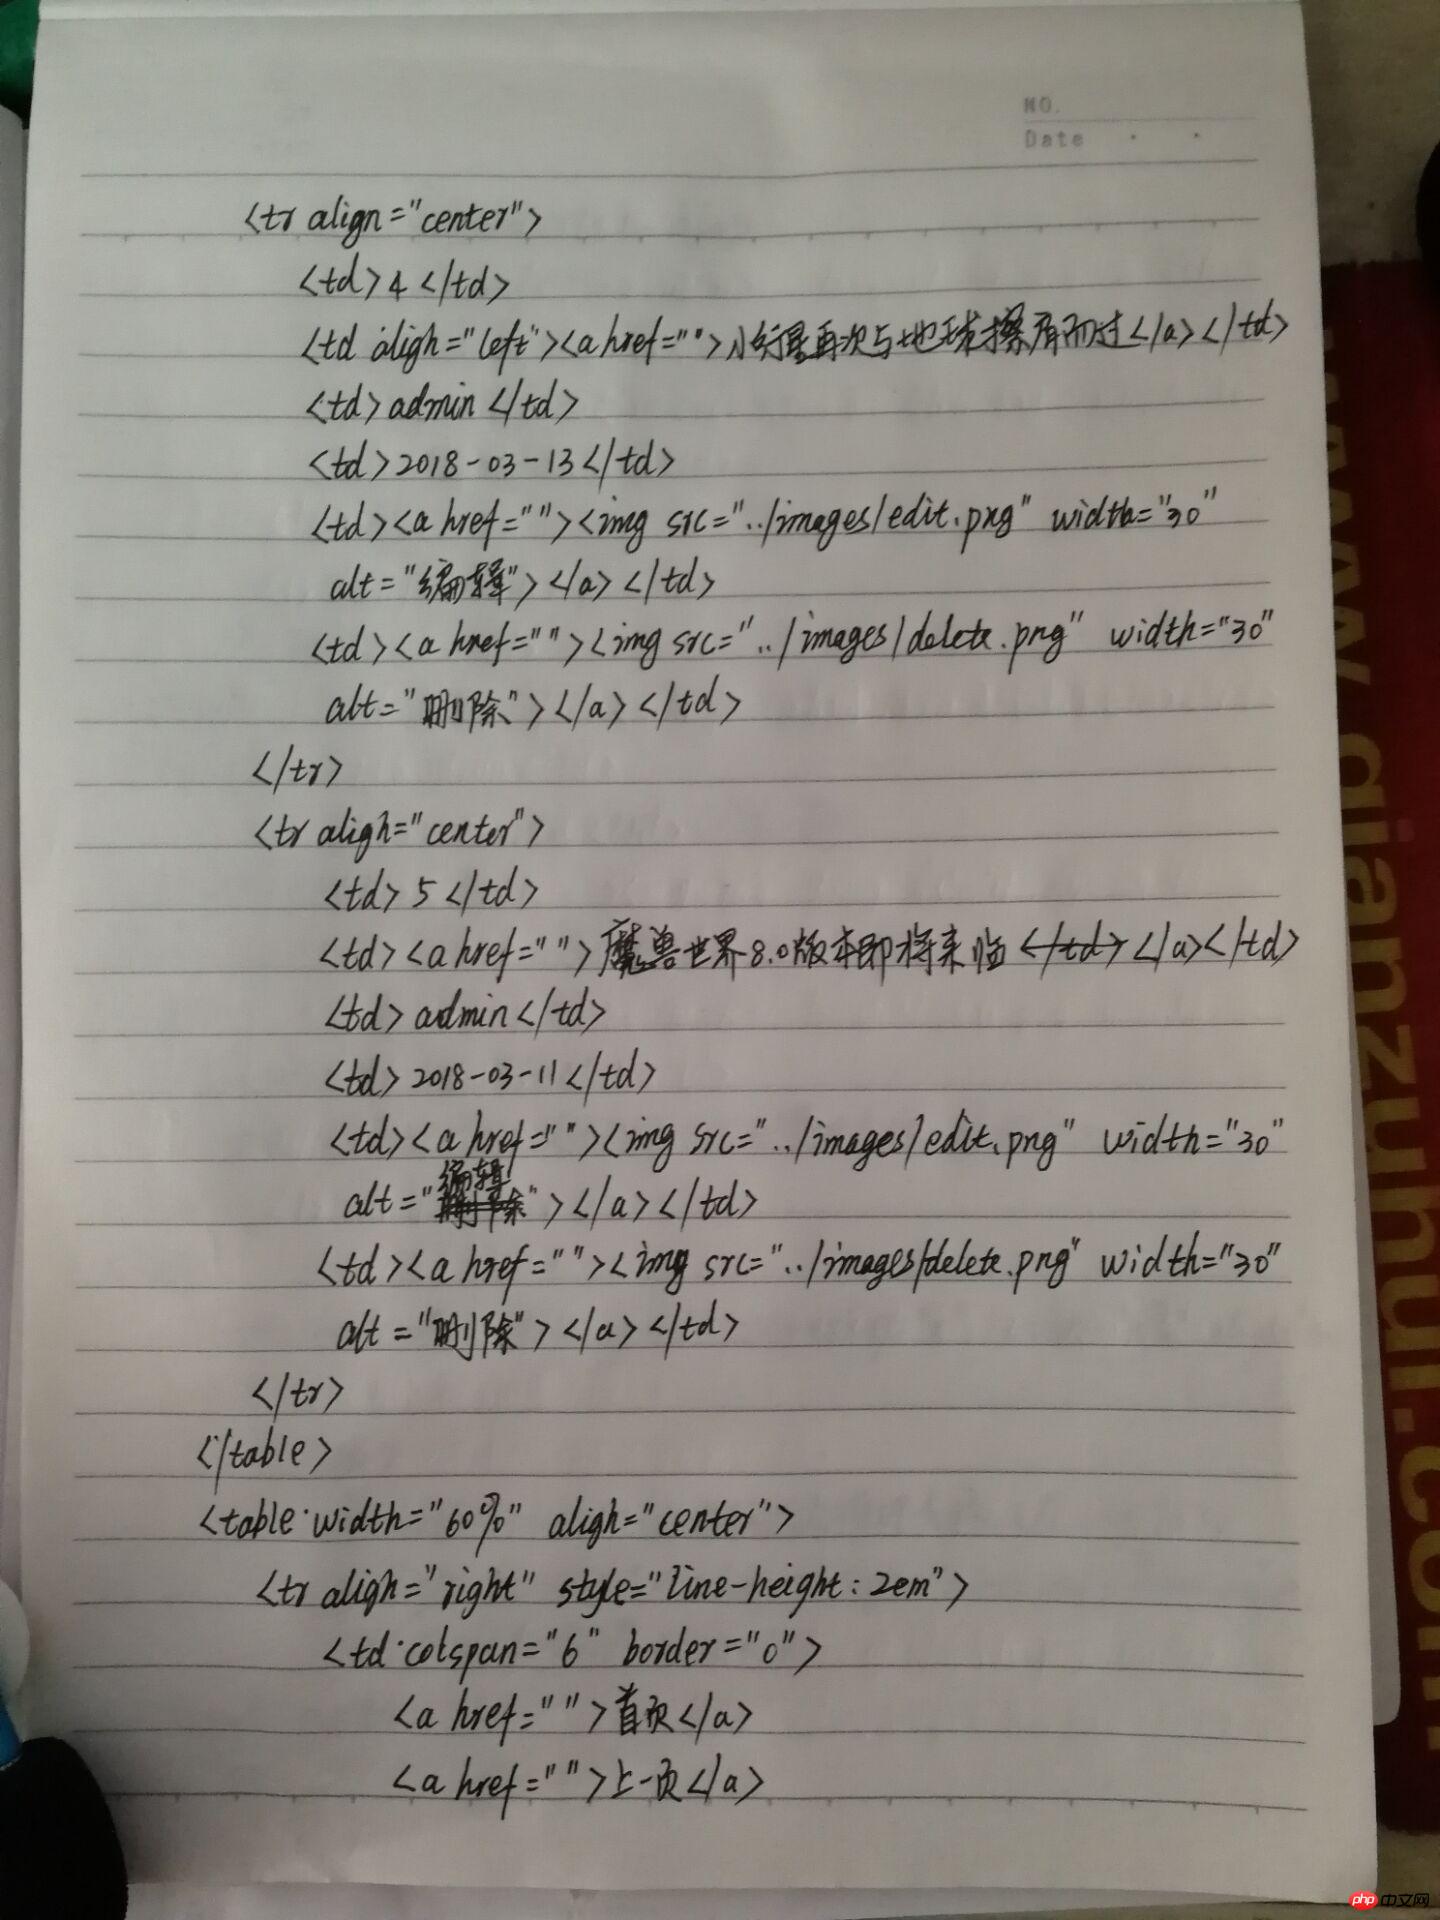 NO.
Date
<tr align="center">
<td>4</td>
<td aligh="left"><a href="">小行星再次与地球擦肩而过</a></td>
<td>admin</td>
<td>2018-03-13</td>
<td><a href=""><img src="../images/edit.png" width="30"
alt="编辑"></a></td>
<td><a href=""><img src="../images/delete.png" width="30"
alt="删除"></a></td>
</tr>
<tr aligh="center">
<td>5</td>
<td><a href="">魔兽世界8.0版本即将来临</td></a></td>
<td>admin</td>
<td>2018-03-11</td>
<td><a href=""><img src="../images/edit.png" width="30"
编辑
alt="删除"></a></td>
<td><a href=""><img src="../images/delete.png" width="30"
alt="删除"></a></td>
</tr>
</table>
<table width="60%" aligh="center">
<tr aligh="right" style="line-height:2em">
<td colspan="6" border="0">
<a href="">首页</a>
<a href="">上一页</a>
www.qianzuhui.com
php中文网